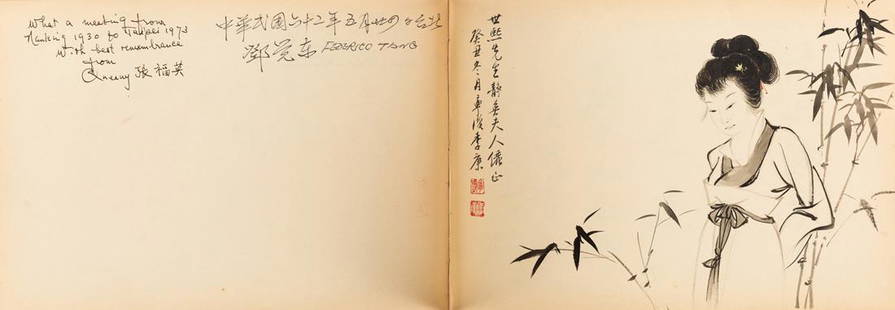 What a meeting from
Nanking 1930 to Taipei 1973
With best remembrance
from
張福英
中華民國六十二年五月廿四日台北
鄧莞東 FEDERICO TANG
世熙先生靜英夫人儷正
癸丑冬月季康